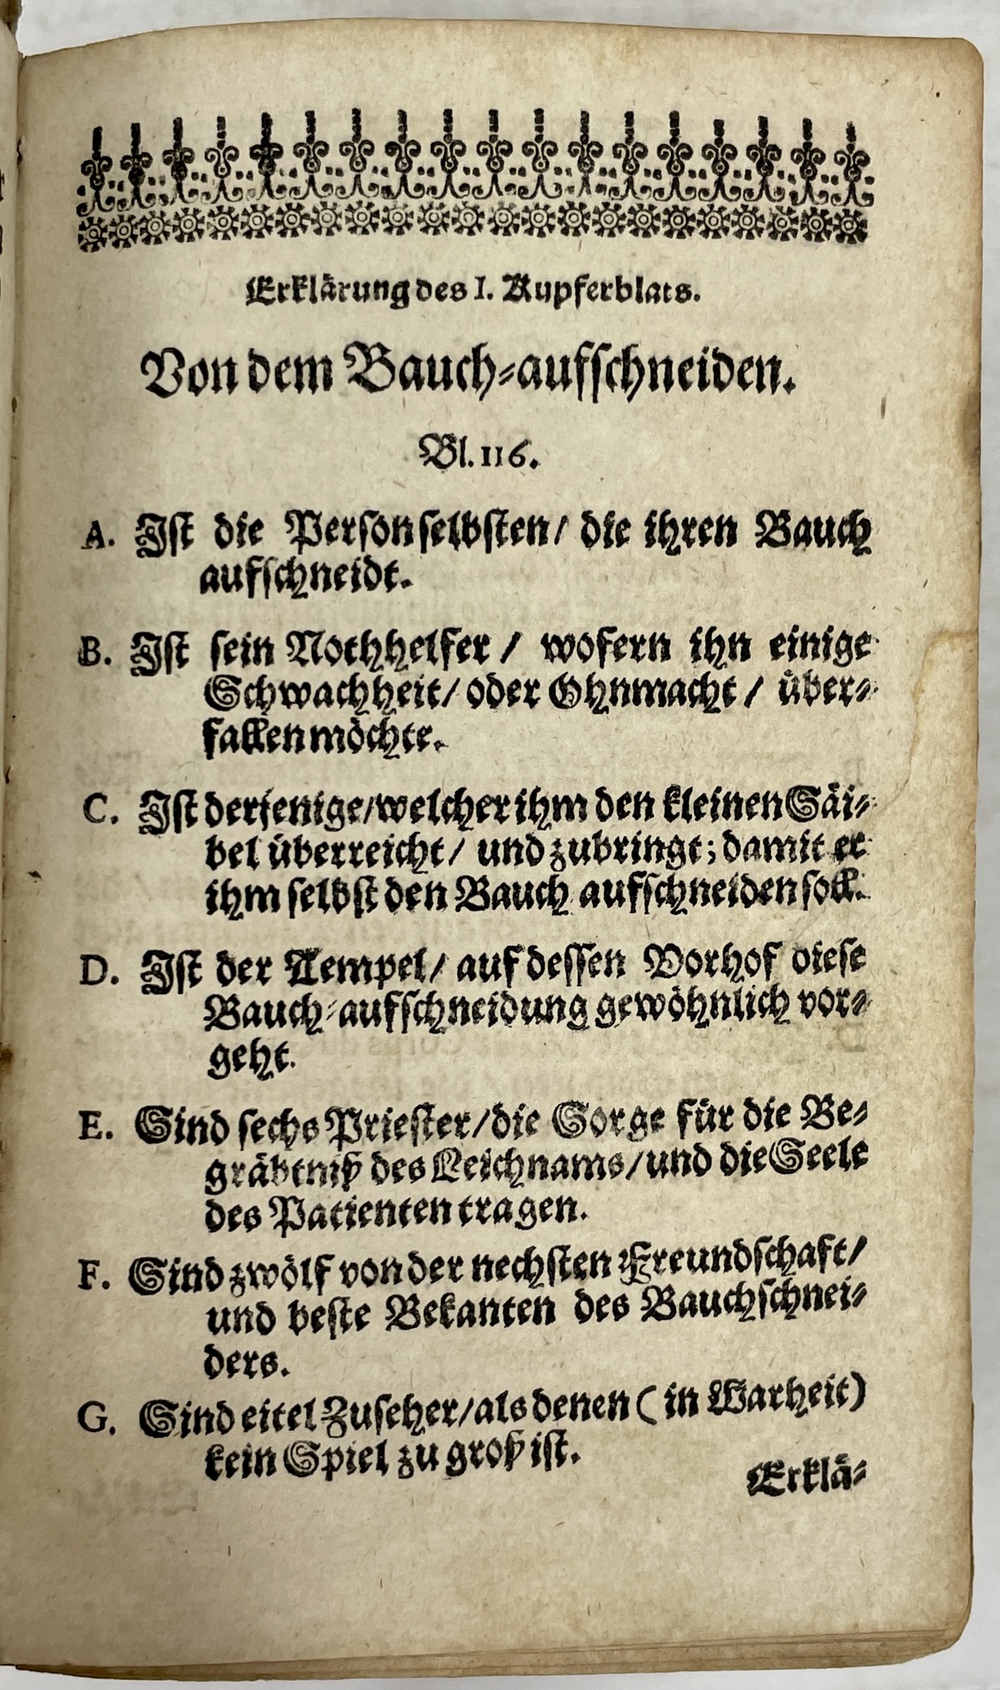 Erklärung des I. Kupferblats.
Von dem Bauch-aufschneiden.
Bl. 116.
A. Ist die Person selbsten/ die ihren Bauch
aufschneidt.
B. Ist sein Nothhelfer / wofern ihn einige
Schwachheit/ oder Ohnmacht / über-
fallen möchte.
C. Ist derjenige/welcher ihm den kleinen Säi-
bel überreicht/ und zubringt; damit er
ihm selbst den Bauch aufschneiden soll.
D. Ist der Tempel/ auf dessen Vorhof diese
Bauch-aufschneidung gewöhnlich vor-
geht.
E. Sind sechs Priester/die Sorge für die Be-
gräbtniß des Leichnams/und die Seele
des Patienten tragen.
F. Sind zwölf von der nechsten Freundschaft/
und beste Bekanten des Bauchschnei-
ders.
G. Sind eitel Zuseher/als denen ( in Warheit)
kein Spiel zu groß ist.
Erklä-